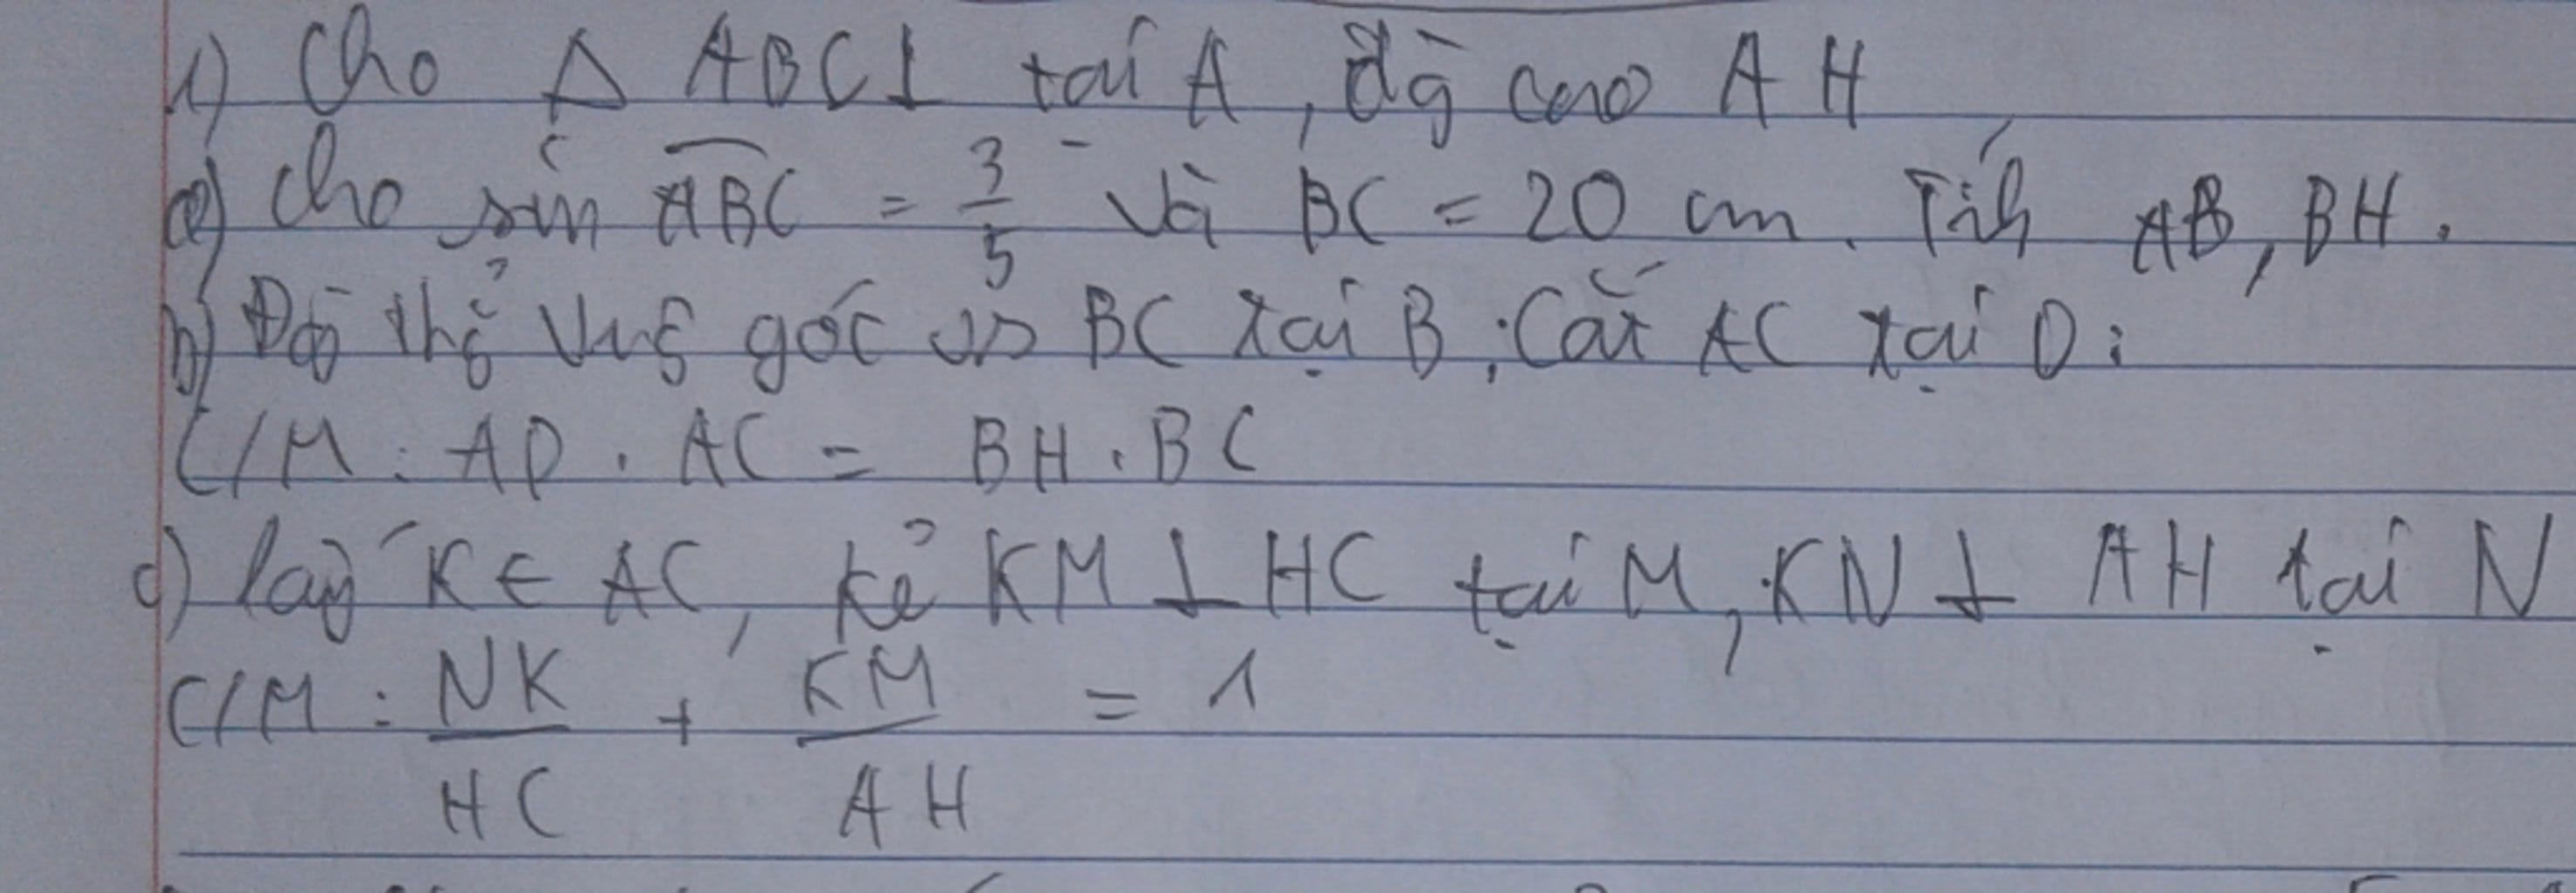 1) Cho Δ ABC ⊥ tại A, đg cao AH
a) Cho sin ABC = 3/5 và BC = 20 cm. Tính AB, BH.
b) Đg thg vug góc vs BC tại B, Cắt AC tại D:
C/M: AD . AC = BH . BC
c) lấy K ∈ AC, kẻ KM ⊥ HC tại M, KN ⊥ AH tại N
C/M: NK/HC + KM/AH = 1